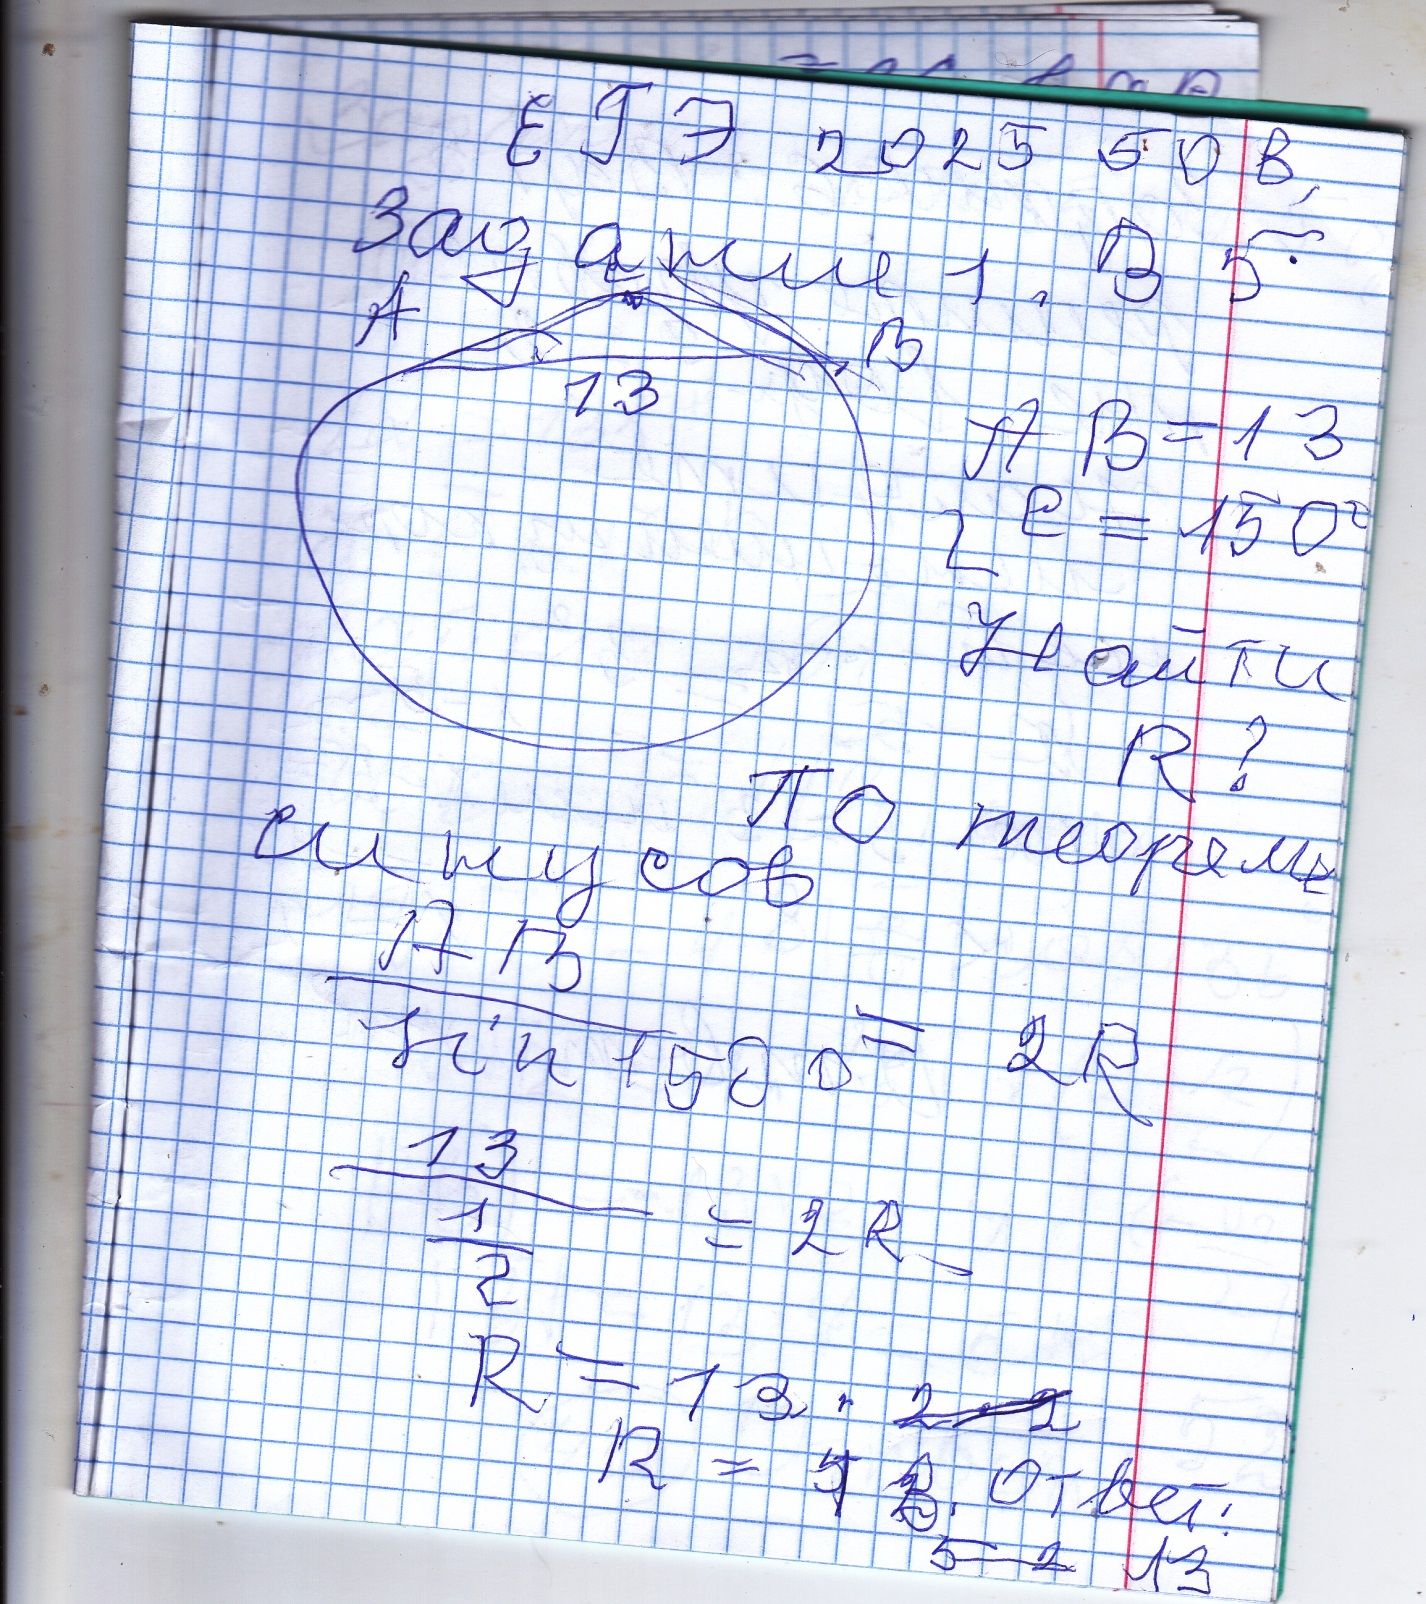 ЕГЭ 2025 50 В,
Задание 1. В 5.
А В
13
АВ = 13
∠С = 150°
Найти
R?
По теореме
синусов
АВ
sin 150° = 2R
13
1
2
= 2R
R = 13 :
R = 13. Ответ:
13